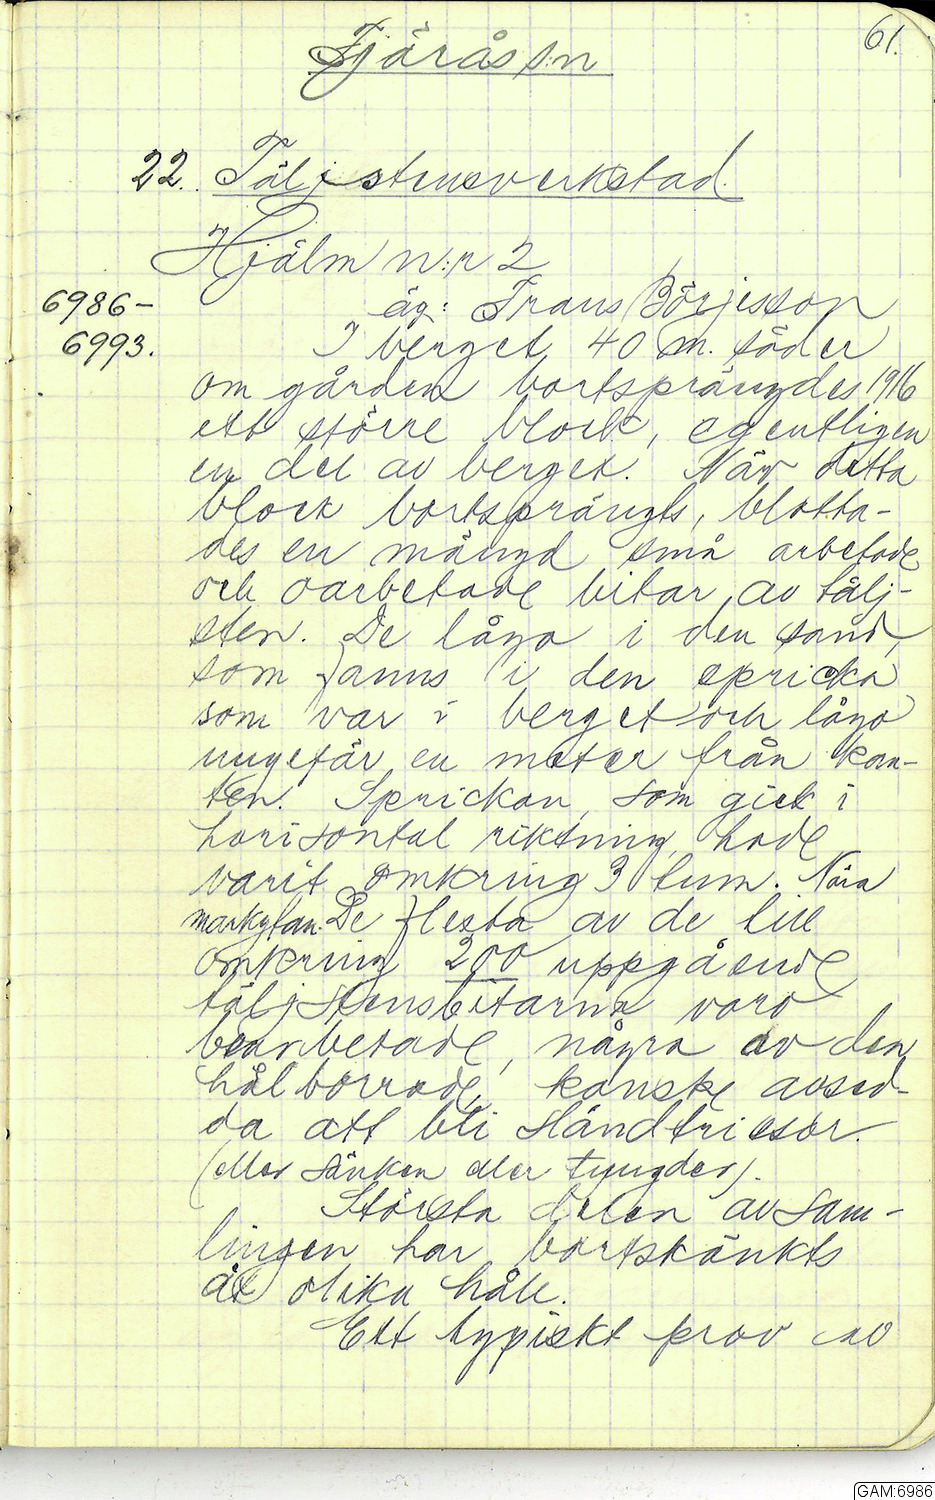 61.
Fjärås s:n
22. Täljstensverkstad.
Hjälm n:r 2
6986–
6993.
äg: Frans Börjesson
I berget 40 m. söder
om gården bortsprängdes 1916
ett större block, egentligen
en del av berget. När detta
block bortsprängts, blotta-
des en mängd små arbetade
och oarbetade bitar av tälj-
sten. De lågo i den sand,
som fanns i den spricka
som var i berget och lågo
ungefär en meter från kan-
ten. Sprickan, som gick i
horisontal riktning, hade
varit omkring 3 tum. Nära
markytan. De flesta av de till
omkring 200 uppgående
täljstensbitarna voro
bearbetade, några av dem
hålborrade, kanske avsed-
da att bli sländtrissor.
(eller sänken eller tyngder).
Största delen av sam-
lingen har bortskänkts
åt olika håll.
Ett typiskt prov av
GAM:6986